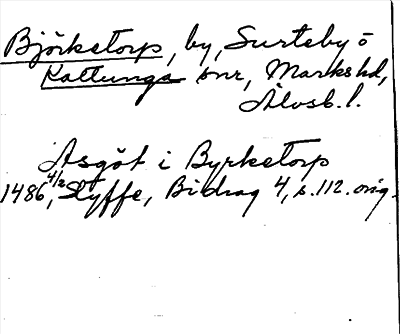 Björketorp, by, Surteby ö
Kattunga snr, Marks hd,
Älvsb. l.
Asgöt i Byrketorp
1486 4/2, Styffe, Bidrag 4, s. 112. orig.